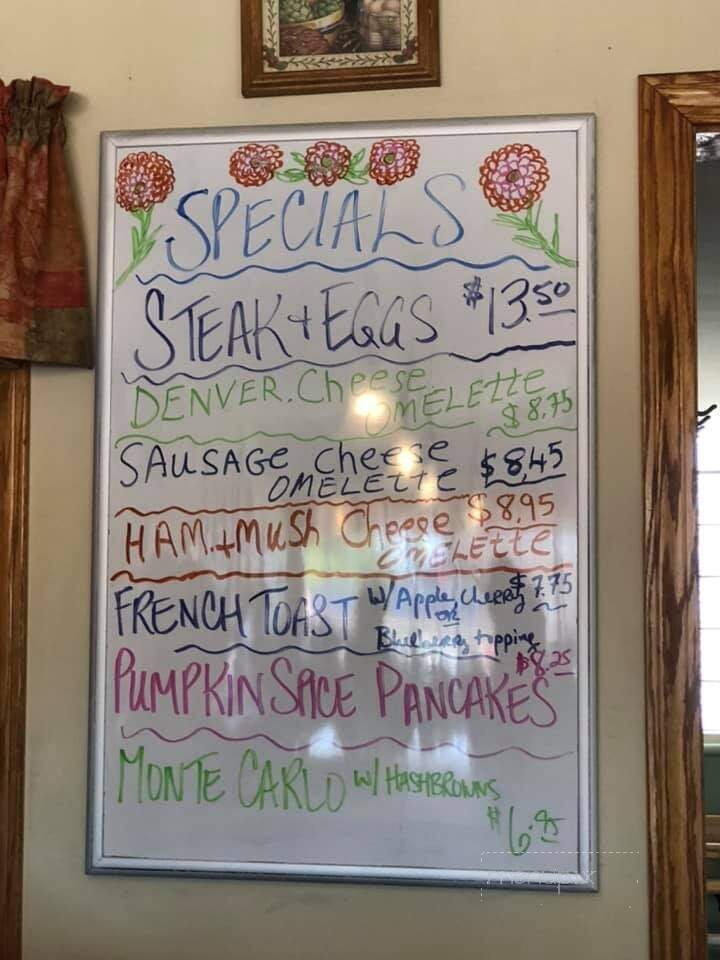 SPECIALS
STEAK + EGGS $13.50
DENVER. Cheese
OMELETTE
$8.75
SAUSAGE cheese $8.45
OMELETTE
HAM.+MUSH Cheese $8.95
OMELETTE
FRENCH TOAST W/ Apple, Cherry $7.75
OR
Blueberry topping
$8.25
PUMPKIN SPICE PANCAKES
MONTE CARLO W/ HASHBROWNS